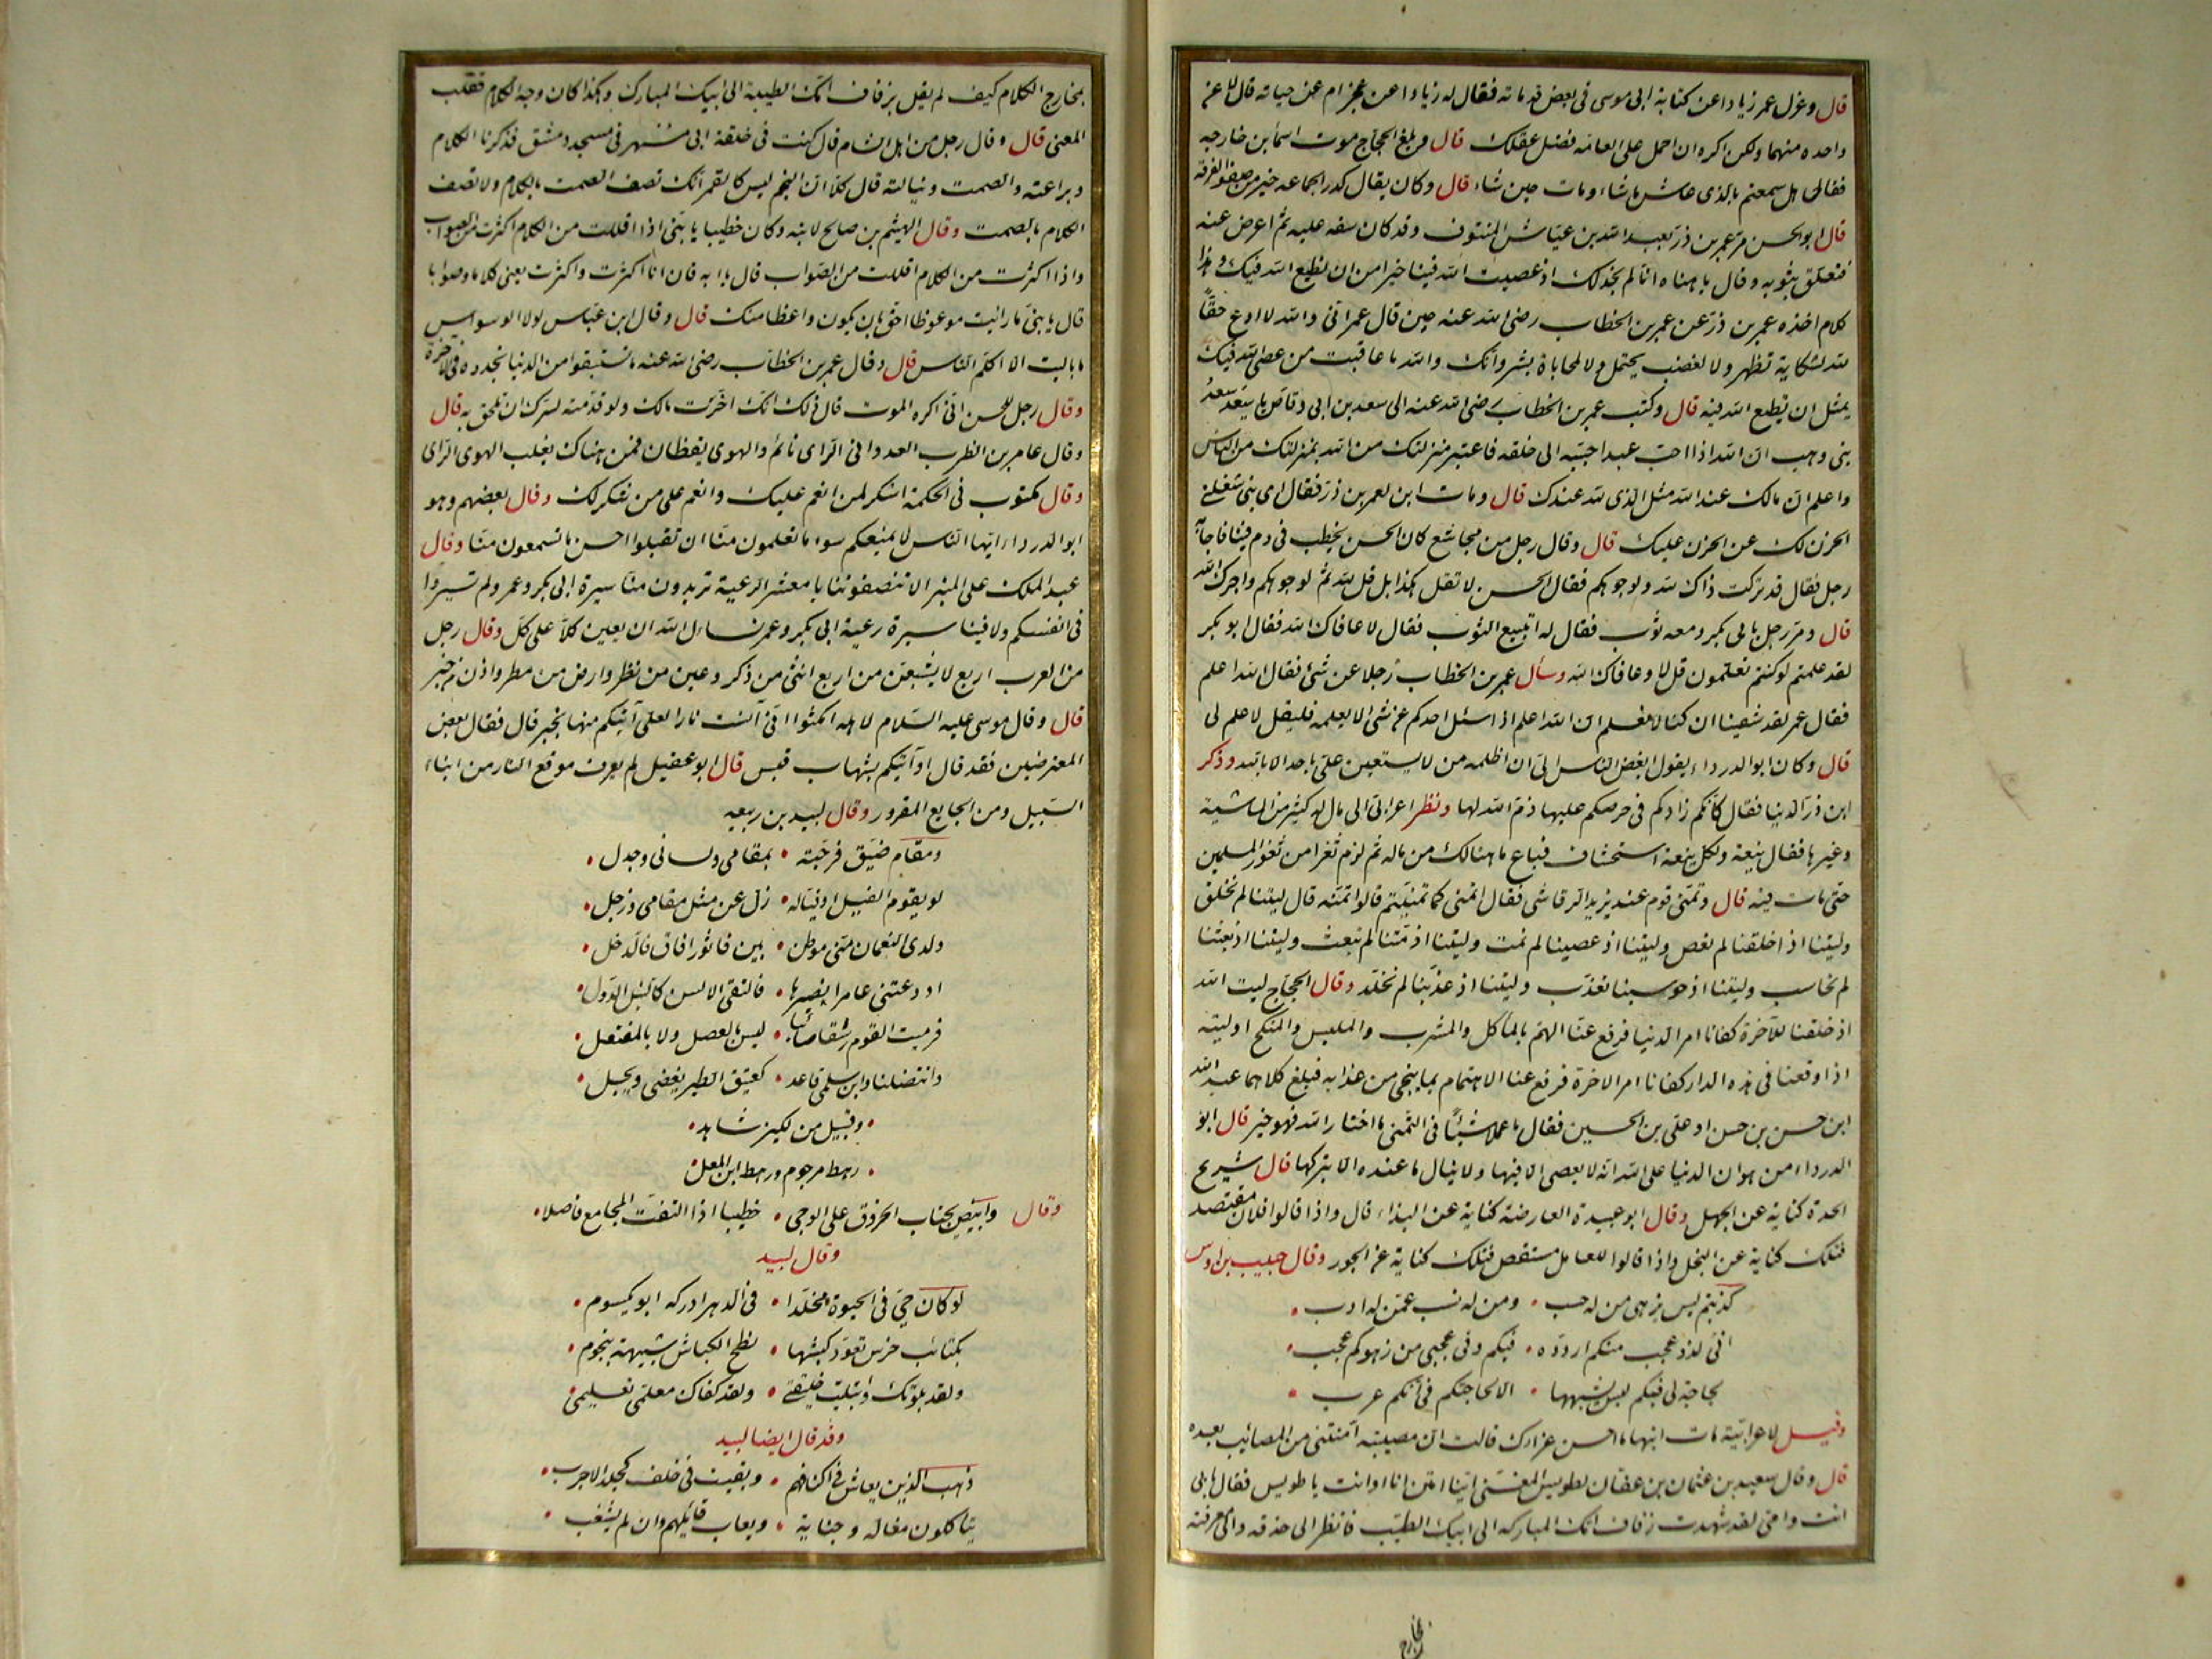 قال وعزل عمر زيادا عن كتابة ابى موسى فى بعض قدماته فقال له زياد اعن عجز ام عن خيانة قال لا عن
واحدة منهما ولكن اكره ان احمل على العامة فضل عقلك قال وبلغ الحجاج موت اسما بن خارجه
فقال هل سمعتم بالذى عاش ما شاء ومات حين شاء قال وكان يقال كدر الجماعه خير من صفو الفرقة
قال ابو الحسن مر عمر بن ذر بعبد الله بن عياش المنتوف وقد كان سفه عليه ثم اعرض عنه
فتعلق بثوبه وقال يا هناه انا لم نجد لك اذ عصيت الله فينا خيرا من ان نطيع الله فيك وهذا
كلام اخذه عمر بن ذر عن عمر بن الخطاب رضى الله عنه حين قال عمر انى والله لا ادع حقا
لله لشكاية تظهر ولا لغضب يحتمل ولا لمحاباة بشر وانك والله ما عاقبت من عصى الله فيك
بمثل ان تطيع الله فيه قال وكتب عمر بن الخطاب رضى الله عنه الى سعد بن ابى وقاص يا سعد سعد
بنى وهب ان الله اذا احب عبدا حببه الى خلقه فاعتبر منزلتك من الله بمنزلتك من الناس
واعلم ان مالك عند الله مثل الذى لله عندك قال ومات ابن لعمر بن ذر فقال اى بنى شغلنى
الحزن لك عن الحزن عليك قال وقال رجل من مجاشع كان الحسن يخطب فى دم فينا فاجابه
رجل فقال قد تركت ذاك لله ولوجوهكم فقال الحسن لا تقل هكذا بل قل لله ثم لوجوهكم واجرك الله
قال ومر رجل بابى بكر ومعه ثوب فقال له اتبيع الثوب فقال لا عافاك الله فقال ابو بكر
لقد علمتم لو كنتم تعلمون قل لا وعافاك الله وسأل عمر بن الخطاب رجلا عن شئ فقال الله اعلم
فقال عمر لقد شقينا ان كنا لا نعلم ان الله اعلم اذا سئل احدكم عن شئ لا يعلمه فليقل لا علم لى
قال وكان ابو الدرداء يقول ابغض الناس الى ان اظلمه من لا يستعين على باحد الا بالله وذكر
ابن ذر الدنيا فقال كانكم زادكم فى حرصكم عليها ذم الله لها ونظر اعرابى الى مال له كثير من الماشية
وغيرها فقال ينعة ولكل ينعة استحشاف فباع ما هنالك من ماله ثم لزم ثغرا من ثغور المسلمين
حتى مات فيه قال وتمنى قوم عند يزيد الرقاشى فقال اتمنى كما تمنيتم قالوا تمنه قال ليتنا لم نخلق
وليتنا اذ خلقنا لم نعص وليتنا اذ عصينا لم نمت وليتنا اذ متنا لم نبعث وليتنا اذ بعثنا
لم نحاسب وليتنا اذ حوسبنا لم نعذب وليتنا اذ عذبنا لم نخلد وقال الحجاج ليت الله
اذ خلقنا للآخرة كفانا امر الدنيا فرفع عنا الهم بالمأكل والمشرب والملبس والمنكح او ليته
اذ اوقعنا فى هذه الدار كفانا امر الاخرة فرفع عنا الاهتمام بما ينجى من عذابه فبلغ كلامهما عبد الله
ابن حسن بن حسن او على بن الحسين فقال ما عملا شيئا فى التمنى ما اختار الله فهو خير قال ابو
الدرداء من هوان الدنيا على الله انه لا يعصى الا فيها ولا ينال ما عنده الا بتركها قال شريح
الحدة كناية عن الجهل وقال ابو عبيدة العارضة كناية عن البذاء قال واذا قالوا فلان مقتصد
فتلك كناية عن البخل واذا قالوا للعامل مستقص فتلك كناية عن الجور وقال حبيب بن اوس
كذبتم ليس يزهى من له حسب • ومن له نسب عمن له ادب •
انى لذو عجب منكم اردده • فيكم وفى عجبى من زهوكم عجب •
لجاجة لى فيكم ليس يشبهها • الا لجاجتكم فى انكم عرب •
وقيل لاعرابية مات ابنها ما احسن عزاءك قالت ان مصيبته آمنتنى من المصائب بعده
قال وقال سعيد بن عثمان بن عفان لطويس المغنى اينا اسن انا او انت يا طويس فقال بابى
انت وامى لقد شهدت زفاف امك المباركه الى ابيك الطيب فانظر الى حذقه والى معرفته
بخارج
بمخارج الكلام كيف لم يقل بزفاف امك الطيبة الى ابيك المبارك وهكذا كان وجه الكلام فقلب
المعنى قال وقال رجل من اهل الشام قال كنت فى حلقة ابى مسهر فى مسجد دمشق فذكرنا الكلام
وبراعته والصمت ونبالته قال كلا ان النجم ليس كالقمر انك تصف الصمت بالكلام ولا تصف
الكلام بالصمت وقال الهيثم بن صالح لابنه وكان خطيبا يا بنى اذا اقللت من الكلام اكثرت من الصواب
واذا اكثرت من الكلام اقللت من الصواب قال يا ابه فان انا اكثرت واكثرت يعنى كلاما وصوابا
قال يا بنى ما رايت موعوظا احق بان يكون واعظا منك قال وقال ابن عباس لولا الوسواس
ما باليت الا اكلم الناس قال وقال عمر بن الخطاب رضى الله عنه ما تستبقوا من الدنيا تجدوه فى الاخرة
وقال رجل للحسن انى اكره الموت قال ذلك انك اخرت مالك ولو قدمته لسرك ان تلحق به قال
وقال عامر بن الظرب العدوانى الرأى نائم والهوى يقظان فمن هنالك يغلب الهوى الراى
وقال مكتوب فى الحكمة اشكر لمن انعم عليك وانعم على من شكر لك وقال بعضهم وهو
ابو الدرداء ايها الناس لا يمنعكم سوء ما تعلمون منا ان تقبلوا احسن ما تسمعون منا وقال
عبد الملك على المنبر الا تنصفوننا يا معشر الرعية تريدون منا سيرة ابى بكر وعمر ولم تسيروا
فى انفسكم ولا فينا سيرة رعية ابى بكر وعمر نساءل الله ان يعين كلا على كل وقال رجل
من العرب اربع لا يشبعن من اربع انثى من ذكر وعين من نظر وارض من مطر واذن من خبر
قال وقال موسى عليه السلام لاهله امكثوا انى آنست نارا لعلى آتيكم منها بخبر قال فقال بعض
المعترضين فقد قال او آتيكم بشهاب قبس قال ابو عقيل لم يعرف موقع النار من ابناء
السبيل ومن الجايع المقرور وقال لبيد بن ربيعه
ومقام ضيق فرجته • بمقامى ولسانى وجدل •
لو يقوم الفيل او فياله • زل عن مثل مقامى وزحل •
ولدى النعمان منى موطن • بين فاثور افاق فالدخل •
اذ دعتنى عامر انصرها • فالتقى الالسن كالنبل الدول •
فرميت القوم رشقا صائبا • ليس بالعصل ولا بالمفتعل •
وانتضلنا وابن سلمى قاعد • كعتيق الطير يغضى ويجل •
• وقبيل من لكيز شاهد •
• رهط مرجوم ورهط ابن المعل •
وقال وابيض يجتاب الخروق على الوجى • خطيبا اذا التفت المجامع فاصلا •
وقال لبيد
لو كان حى فى الحيوة مخلدا • فى الدهر ادركه ابو يكسوم •
بكتائب خرس تعود كبشها • نطح الكباش شبيهة بنجوم •
ولقد بلوتك وابتليت خليقتى • ولقد كفاك معلمى تعليمى •
وقد قال ايضا لبيد
ذهب الذين يعاش فى اكنافهم • وبقيت فى خلف كجلد الاجرب •
يتاكلون مغالة وخيانة • ويعاب قائلهم وان لم يشغب •